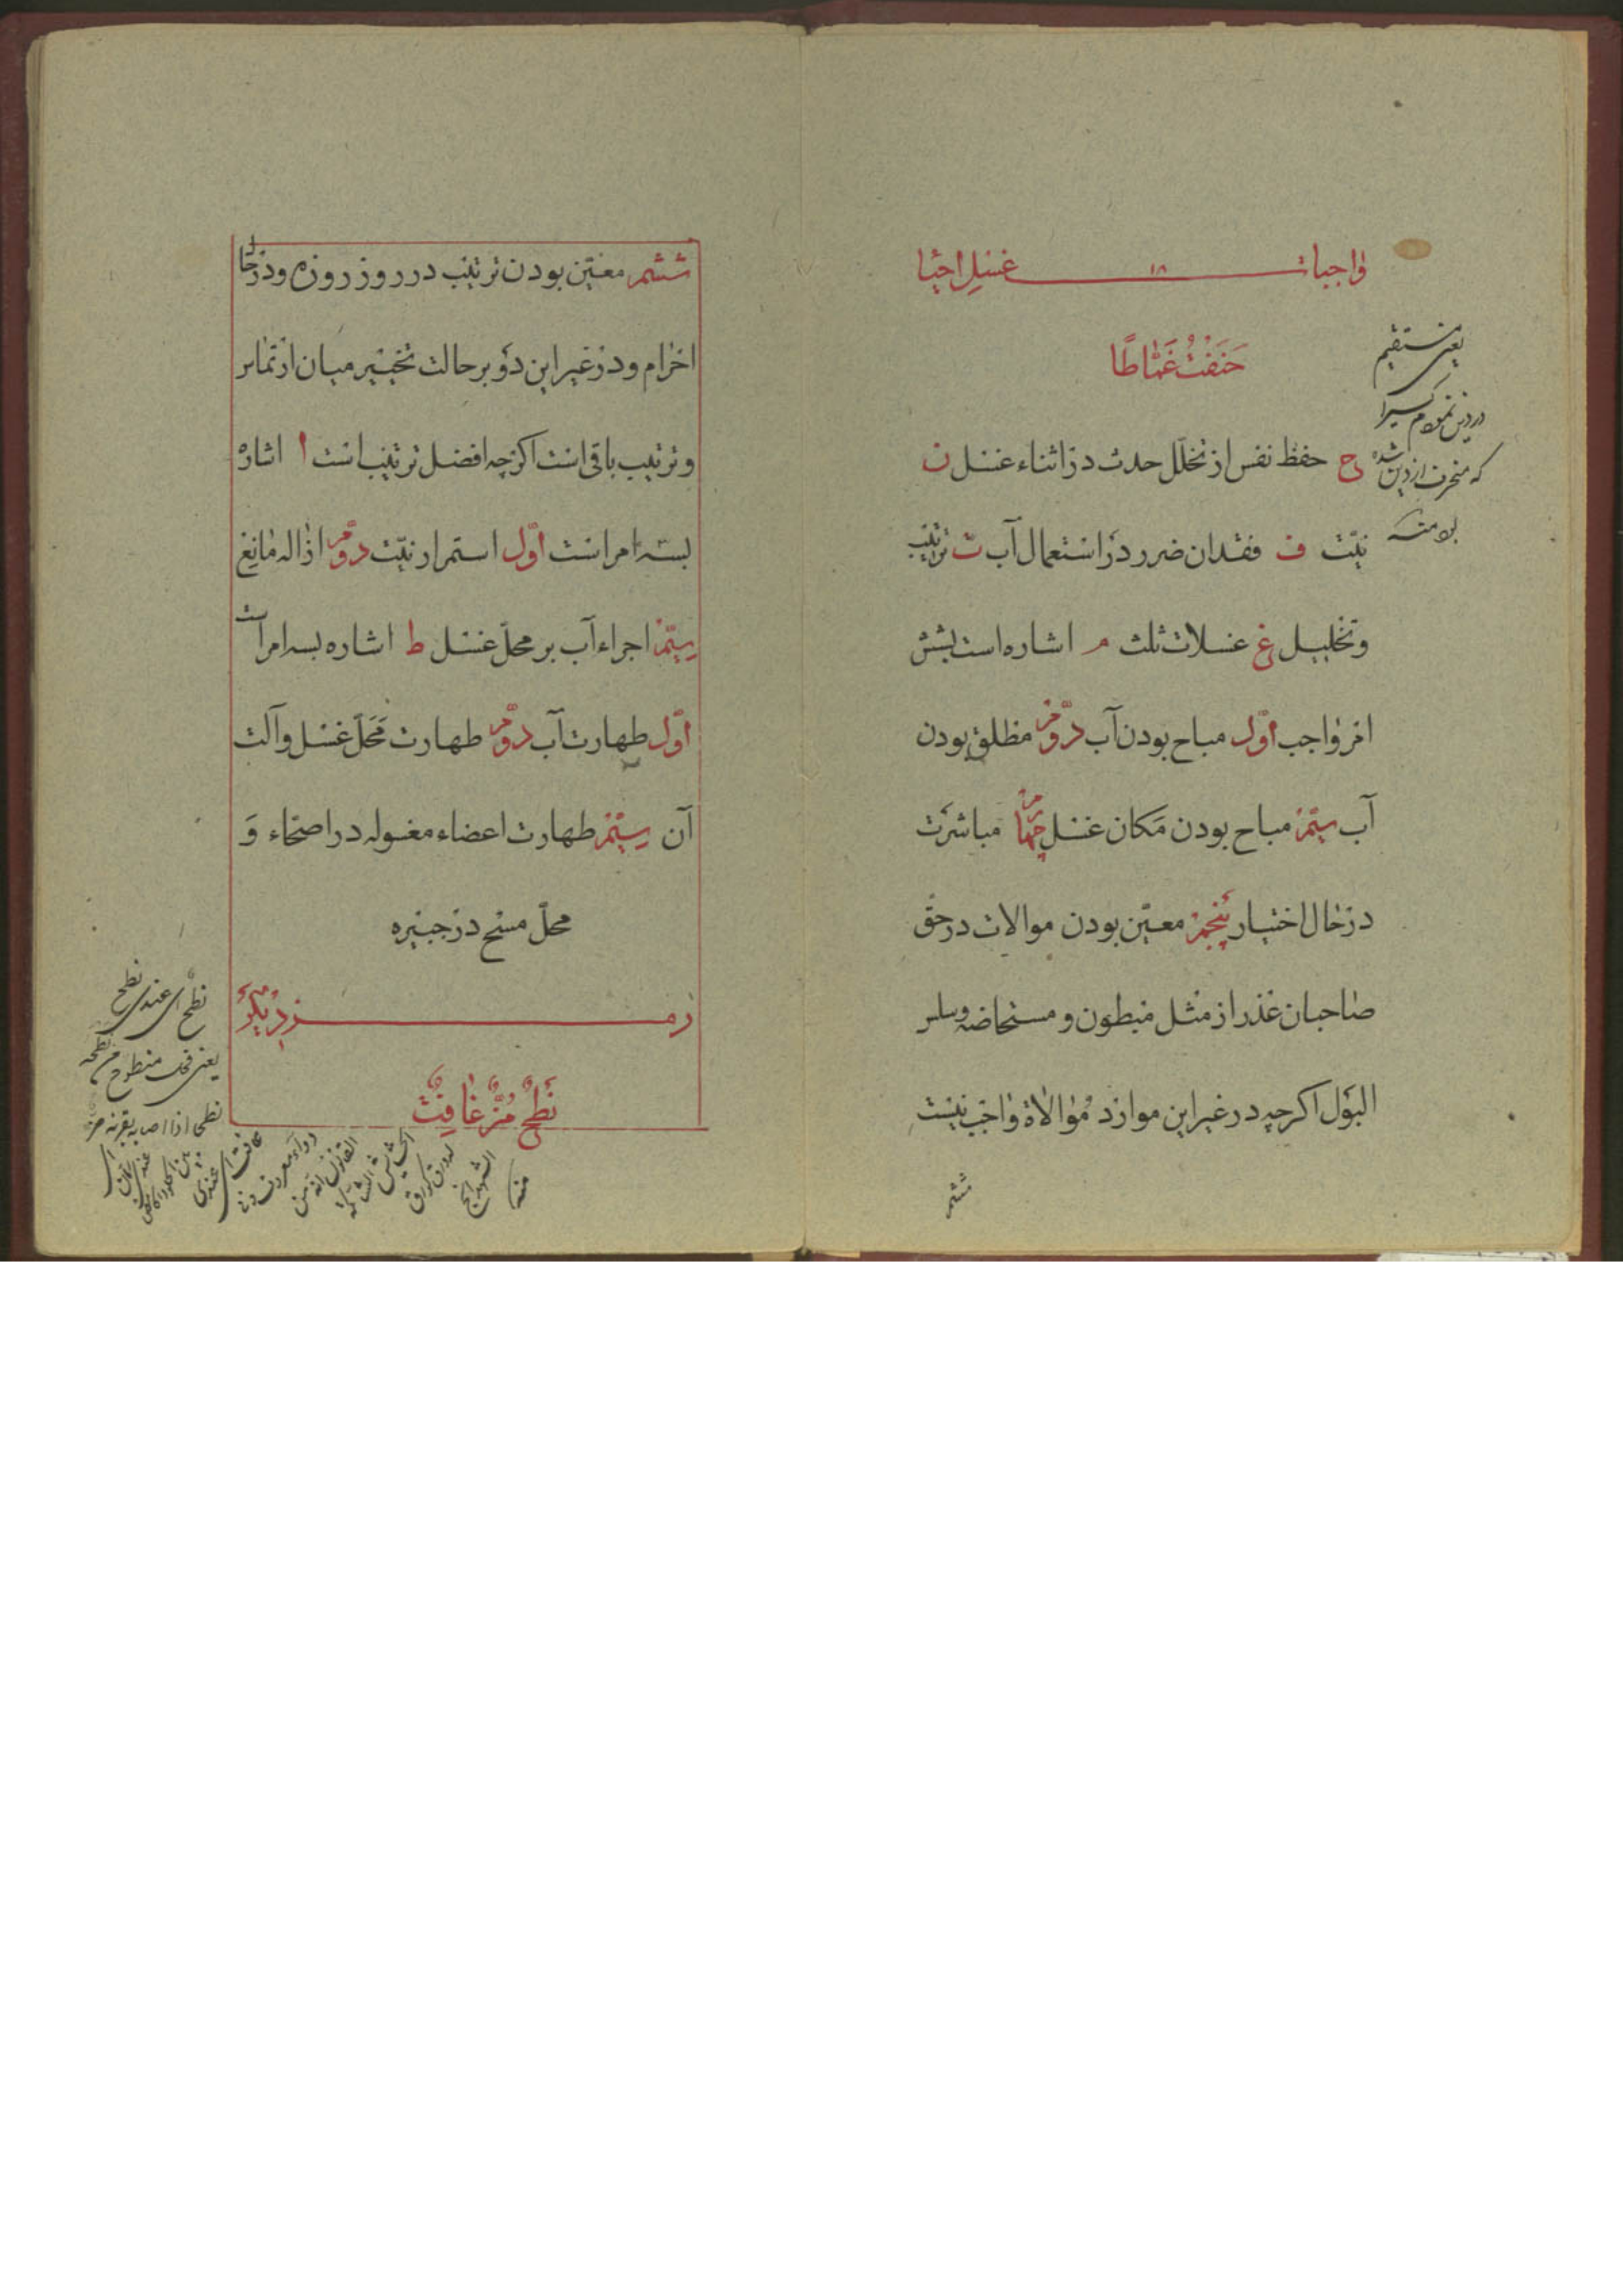 واجبات ۱۸ غسل احیا
حَنَفْتُ غَمّاطًا
ح حفظ نفس از تخلّل حدث در اثناء غسل ن
نیّت ف فقدان ضرر در استعمال آب ت ترتیب
و تخلیل غ غسلات ثلث م اشاره است بشش
امر واجب اوّل مباح بودن آب دوّم مطلق بودن
آب سیّم مباح بودن مکان غسل چهارم مباشرت
در حال اختیار پنجم معیّن بودن موالات در حق
صاحبان عذر از مثل مبطون و مستحاضه و سلس
البول اکرچه در غیر این موارد موالاة واجب نیست
ششم
یعنی مستقیم
در دین نمودم کسیرا
که منحرف از دین شده
بود منه
ششم معیّن بودن ترتیب در روز روزه و در حال
احرام و در غیر این دو بر حالت تخییر میان ارتماس
و ترتیب باقی است اکرچه افضل ترتیب است ا اشاره
بسه امر است اوّل استمرار نیّت دوّم ازاله مانع
سیّم اجراء آب بر محلّ غسل ط اشاره بسه امر است
اوّل طهارت آب دوّم طهارت محلّ غسل و آلت
آن سیّم طهارت اعضاء مغسوله در اصحّاء و
محلّ مسح در جبیره
رمز دیکر
نَطْحٌ مُنَّ غافِتٌ
نطح ای عندی نطح
یعنی منطوح من نطحه
منه